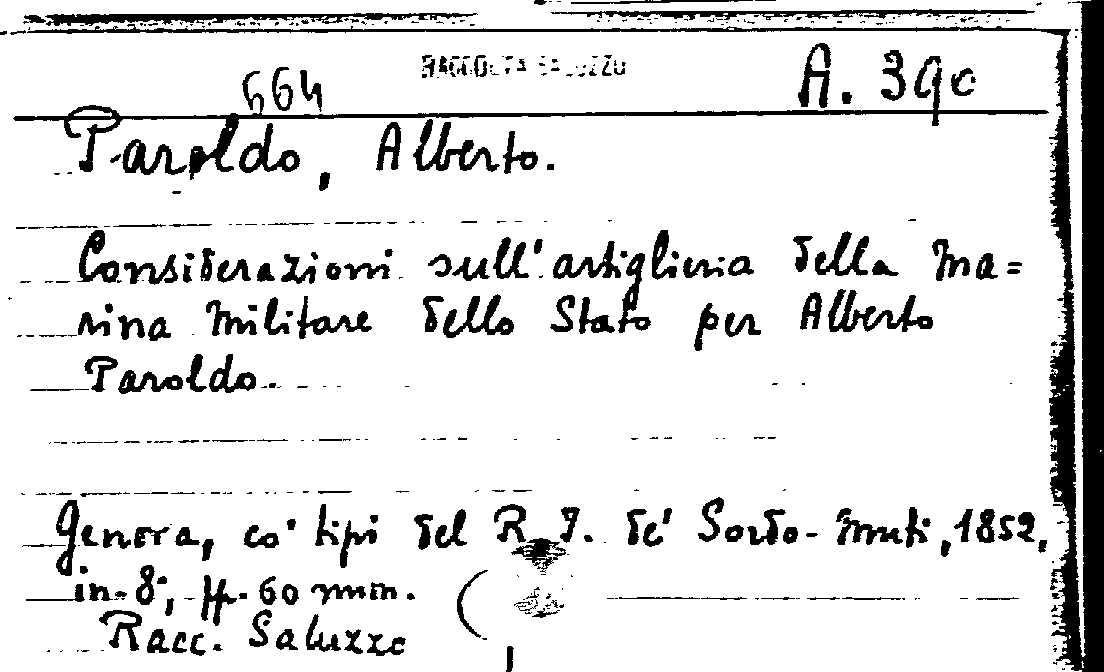 RACCOLTA SALUZZO
664 A. 390
Paroldo, Alberto.
Considerazioni sull'artiglieria della Ma=
rina Militare dello Stato per Alberto
Paroldo.
Genova, co' tipi del R. I. de' Sordo-Muti, 1852,
in-8°, pp. 60 num.
Racc. Saluzzo